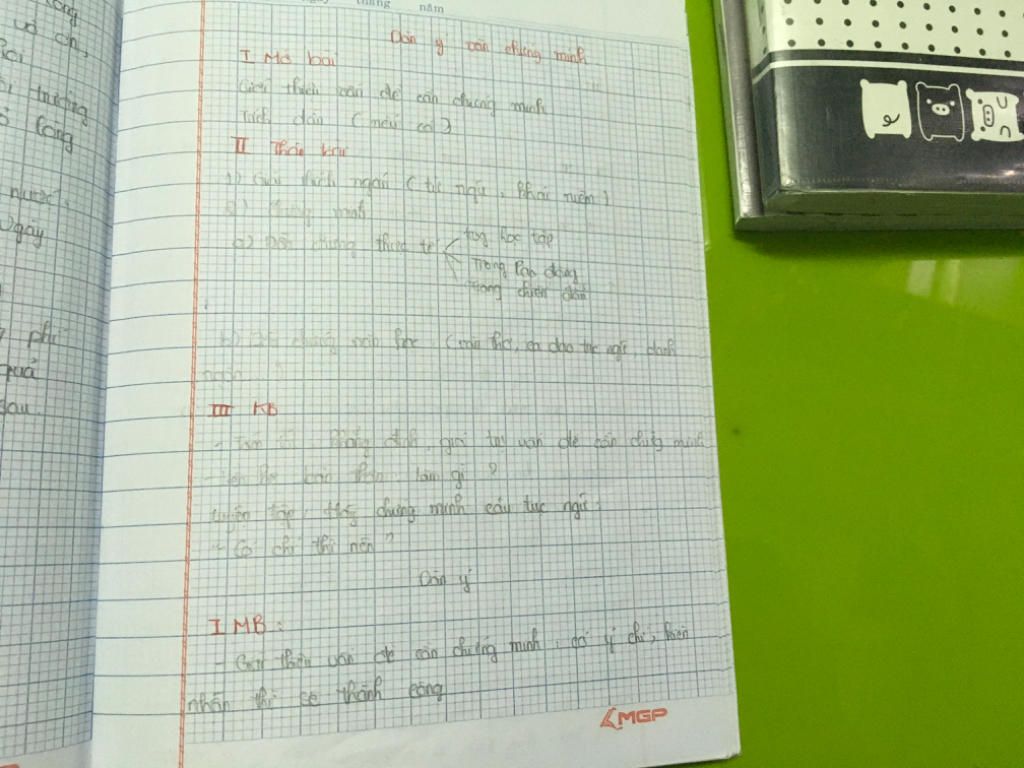 ngày tháng năm
Dàn ý văn chứng minh
I Mở bài
Giới thiệu vấn đề cần chứng minh
Trích dẫn (nếu có)
II Thân bài
1) Giải thích ngắn (tục ngữ, khái niệm)
2) Chứng minh
a) Dẫn chứng thực tế
trong học tập
Trong lao động
trong chiến đấu
b) Dẫn chứng văn học (câu thơ, ca dao tục ngữ, danh
ngôn
III KB
khẳng định, giá trị vấn đề cần chứng minh
- bản thân làm gì?
Luyện tập: Hãy chứng minh câu tục ngữ:
"Có chí thì nên"
Dàn ý
I MB:
- Giới thiệu vấn đề cần chứng minh: có ý chí, kiên
nhẫn thì sẽ thành công
MGP
trường
lòng
nước.
Ngày
phí
quả
sau.